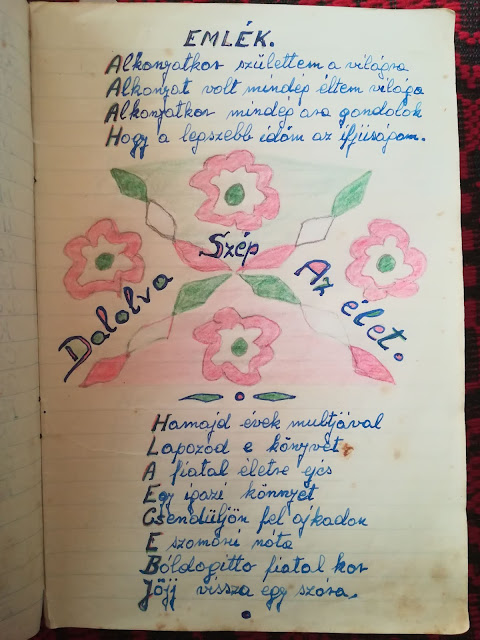 EMLÉK.
Alkonyatkor születtem a világra
Alkonyat volt mindég éltem világa
Alkonyatkor mindég ara gondolok
Hogy a legszebb időm az ifjúságom.
Dalolva Szép Az élet.
Hamajd évek multjával
Lapozod e könyvet
A fiatal életre ejcs
Egy igazi könnyet
Csendüljön fel ajkadon
E szomorú nóta
Bóldogitto fiatal kor
Jöjj vissza egy szóra.